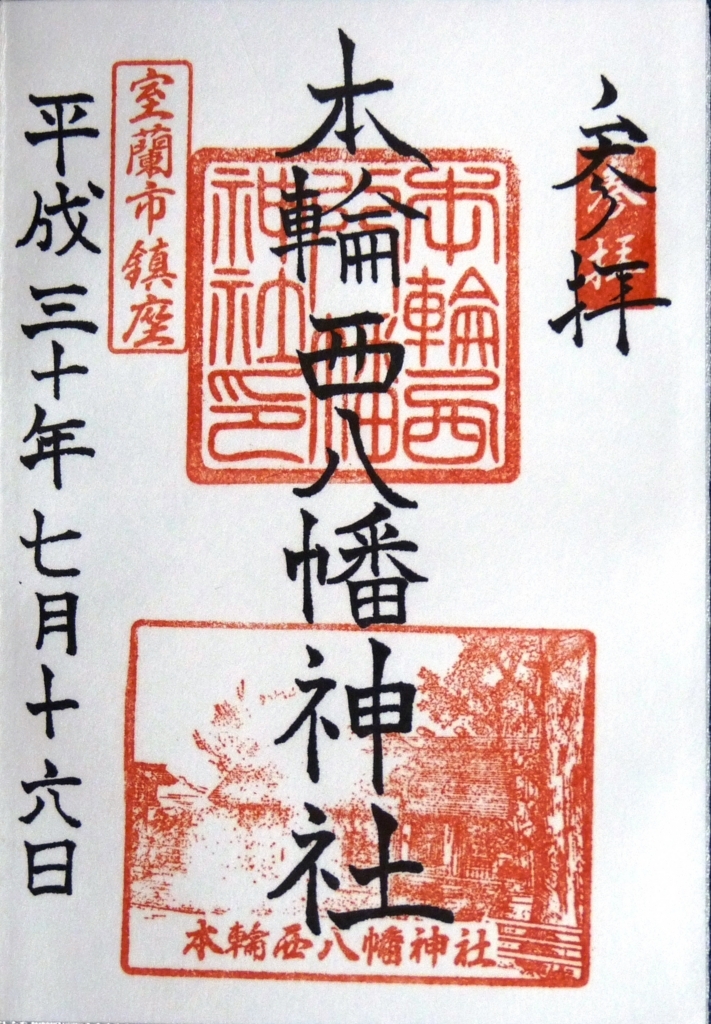 参拝
参拝
本輪西八幡神社
本輪西
八幡
神社印
室蘭市鎮座
平成三十年七月十六日
本輪西八幡神社